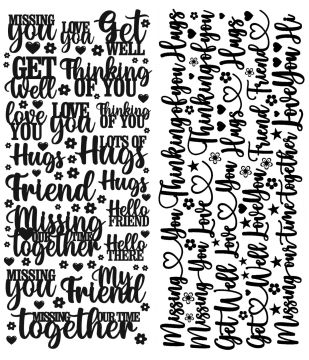 MISSING
you
LOVE
you
Get
WELL
GET
Well
Thinking
OF YOU
love
YOU
LOVE
you
Thinking
OF YOU
Hugs
LOTS OF
Hugs
Friend
Hugs
Missing
OUR TIME
together
Hello
FRIEND
Hello
THERE
MISSING
you
My
Friend
MISSING
OUR TIME
together
Missing You Thinking of you Hugs
Missing You Love Thinking of you
Get Well Love You Hugs Hugs
Get Well Love You Friend Friend
Missing our Time Together Love You Hi